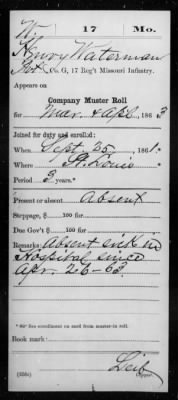 W 17 Mo.
Henry Waterman
Pvt., Co. G, 17 Reg't Missouri Infantry.
Appears on
Company Muster Roll
for Mar. & Apl., 1863
Joined for duty and enrolled:
When Sept. 25, 1861.*
Where St. Louis
Period 3 years.*
Present or absent Absent
Stoppage, $ 100 for
Due Gov't $ 100 for
Remarks: Absent sick in
Hospital since
Apr. 26-63.
Book mark:
(358c) Copyist.